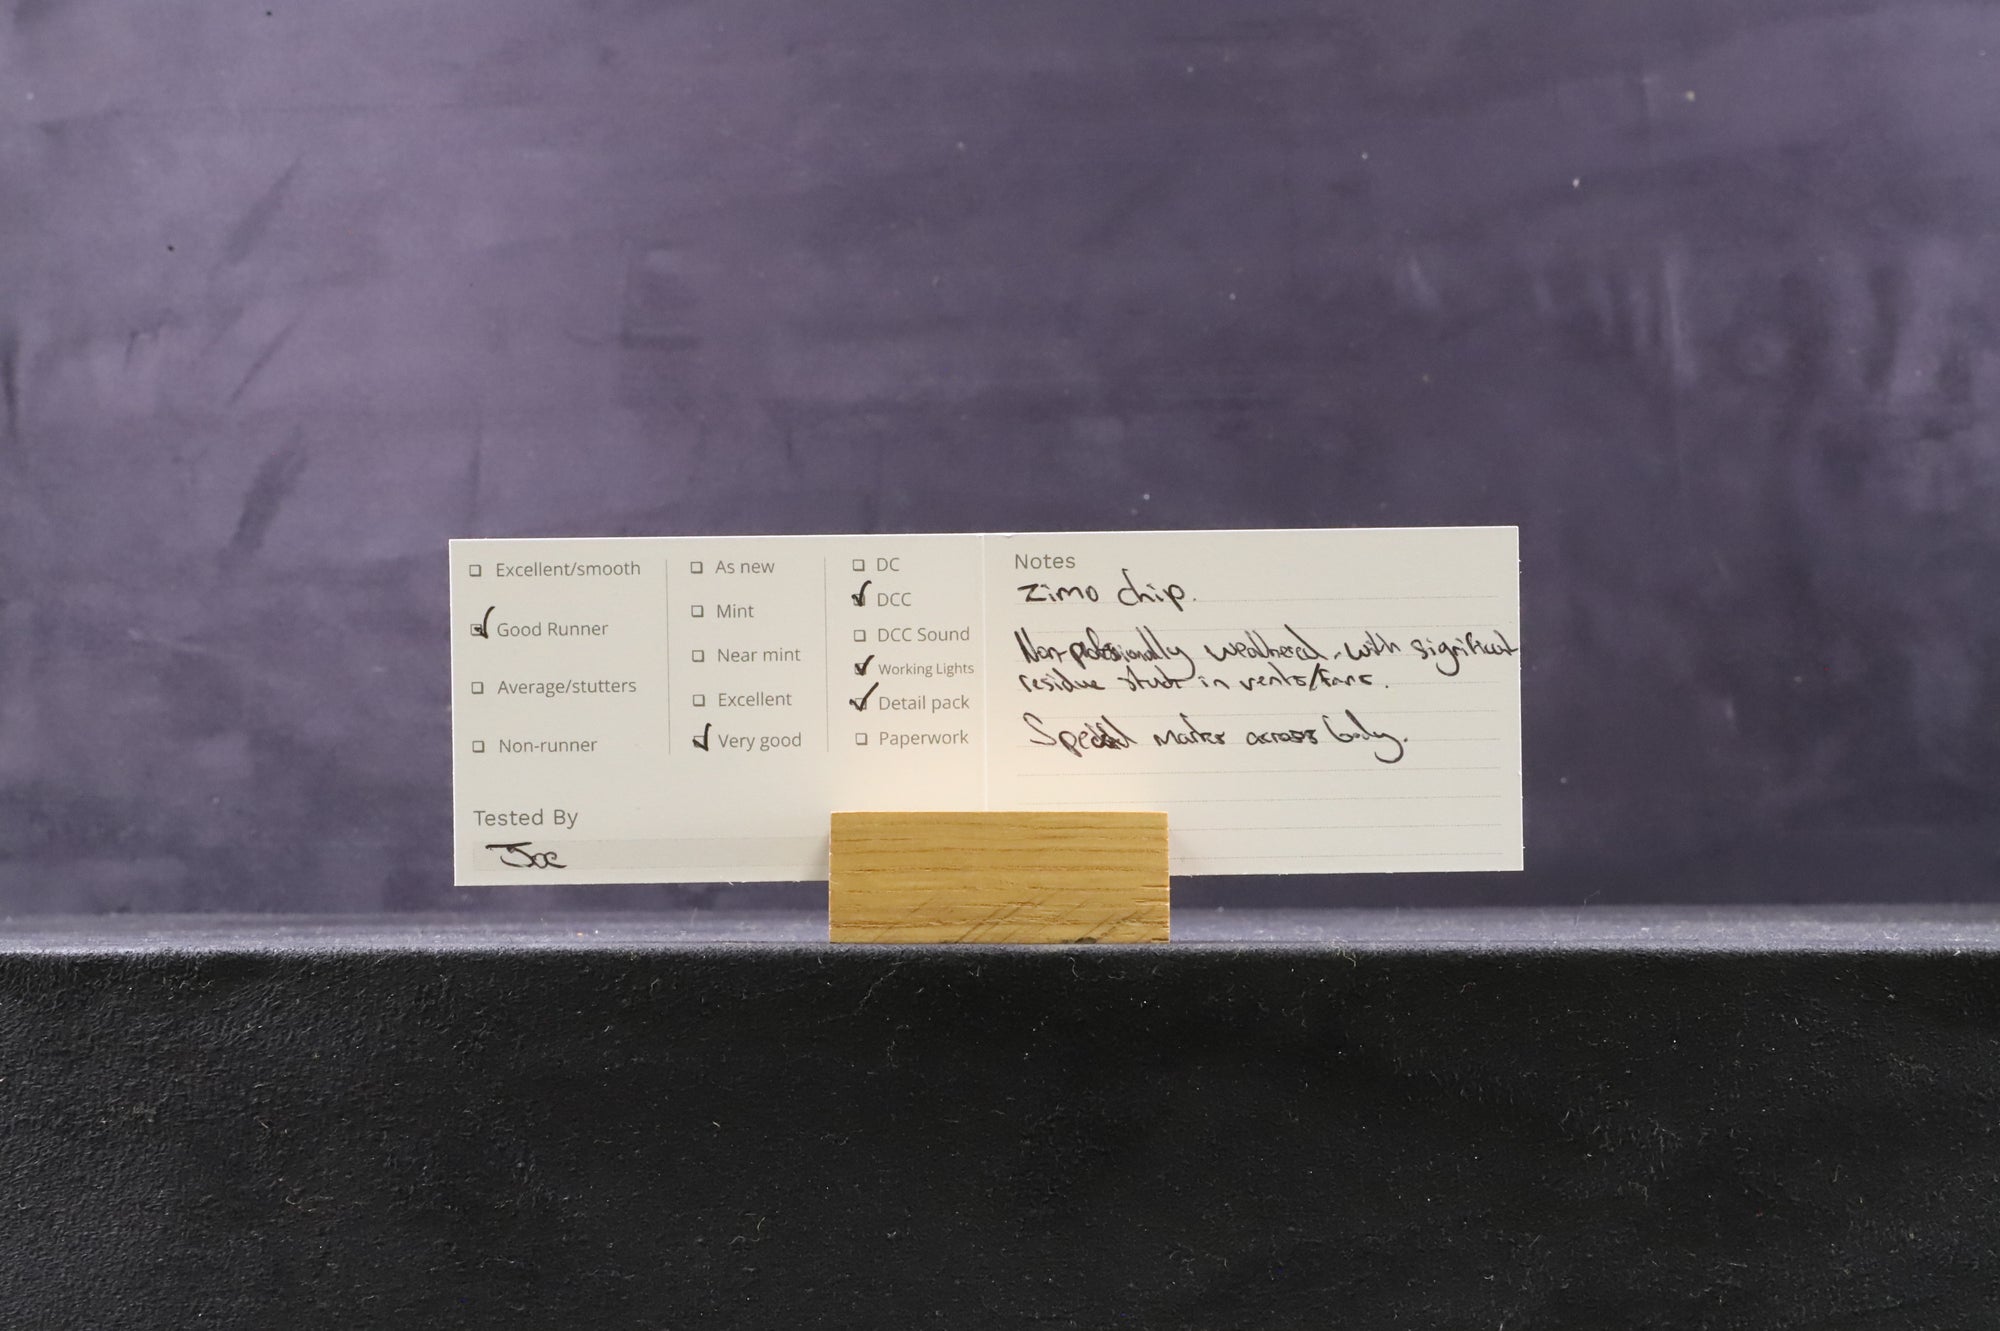 Excellent/smooth
Good Runner
Average/stutters
Non-runner
As new
Mint
Near mint
Excellent
Very good
DC
DCC
DCC Sound
Working Lights
Detail pack
Paperwork
Tested By
Joe
Notes
Zimo chip.
Non-professionally weathered, with significant
residue stuck in vents/fans.
marks across body.